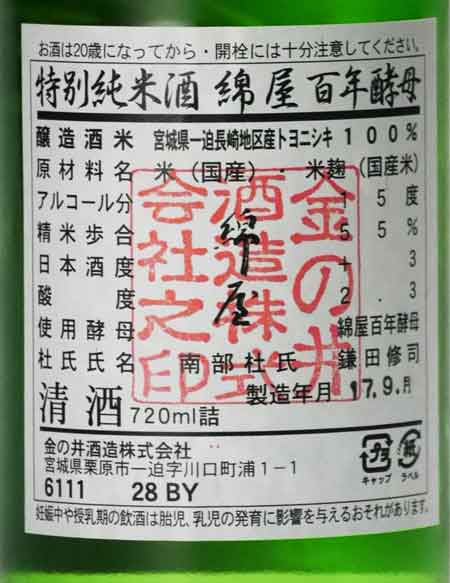 お酒は20歳になってから・開栓には十分注意してください。
特別純米酒 綿屋 百年酵母
醸造酒米 宮城県一迫長崎地区産トヨニシキ 100%
原材料名 米(国産)・米麹(国産米)
アルコール分 15度
精米歩合 55%
日本酒度 + 3
酸度 2.3
使用酵母 綿屋百年酵母
杜氏氏名 南部杜氏 鎌田修司
清酒 720ml詰 製造年月 17.9.月
綿屋
金の井酒造株式会社之印
金の井酒造株式会社
宮城県栗原市一迫字川口町浦1-1
6111 28 BY
キャップ ラベル
プラ 紙
妊娠中や授乳期の飲酒は胎児、乳児の発育に影響を与えるおそれがあります。